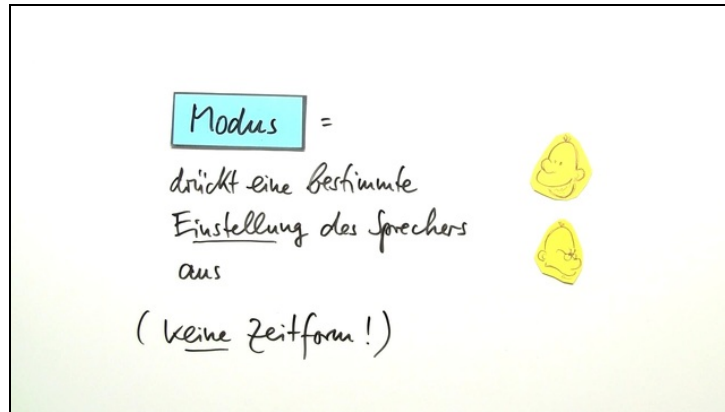 Modus =
drückt eine bestimmte
Einstellung des Sprechers
aus
(keine Zeitform!)